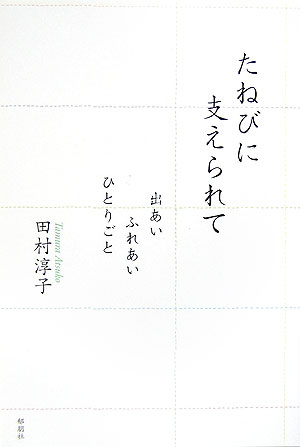 たねびに
支えられて
出あい
ふれあい
ひとりごと
Tamura Atsuko
田村淳子
郁朋社